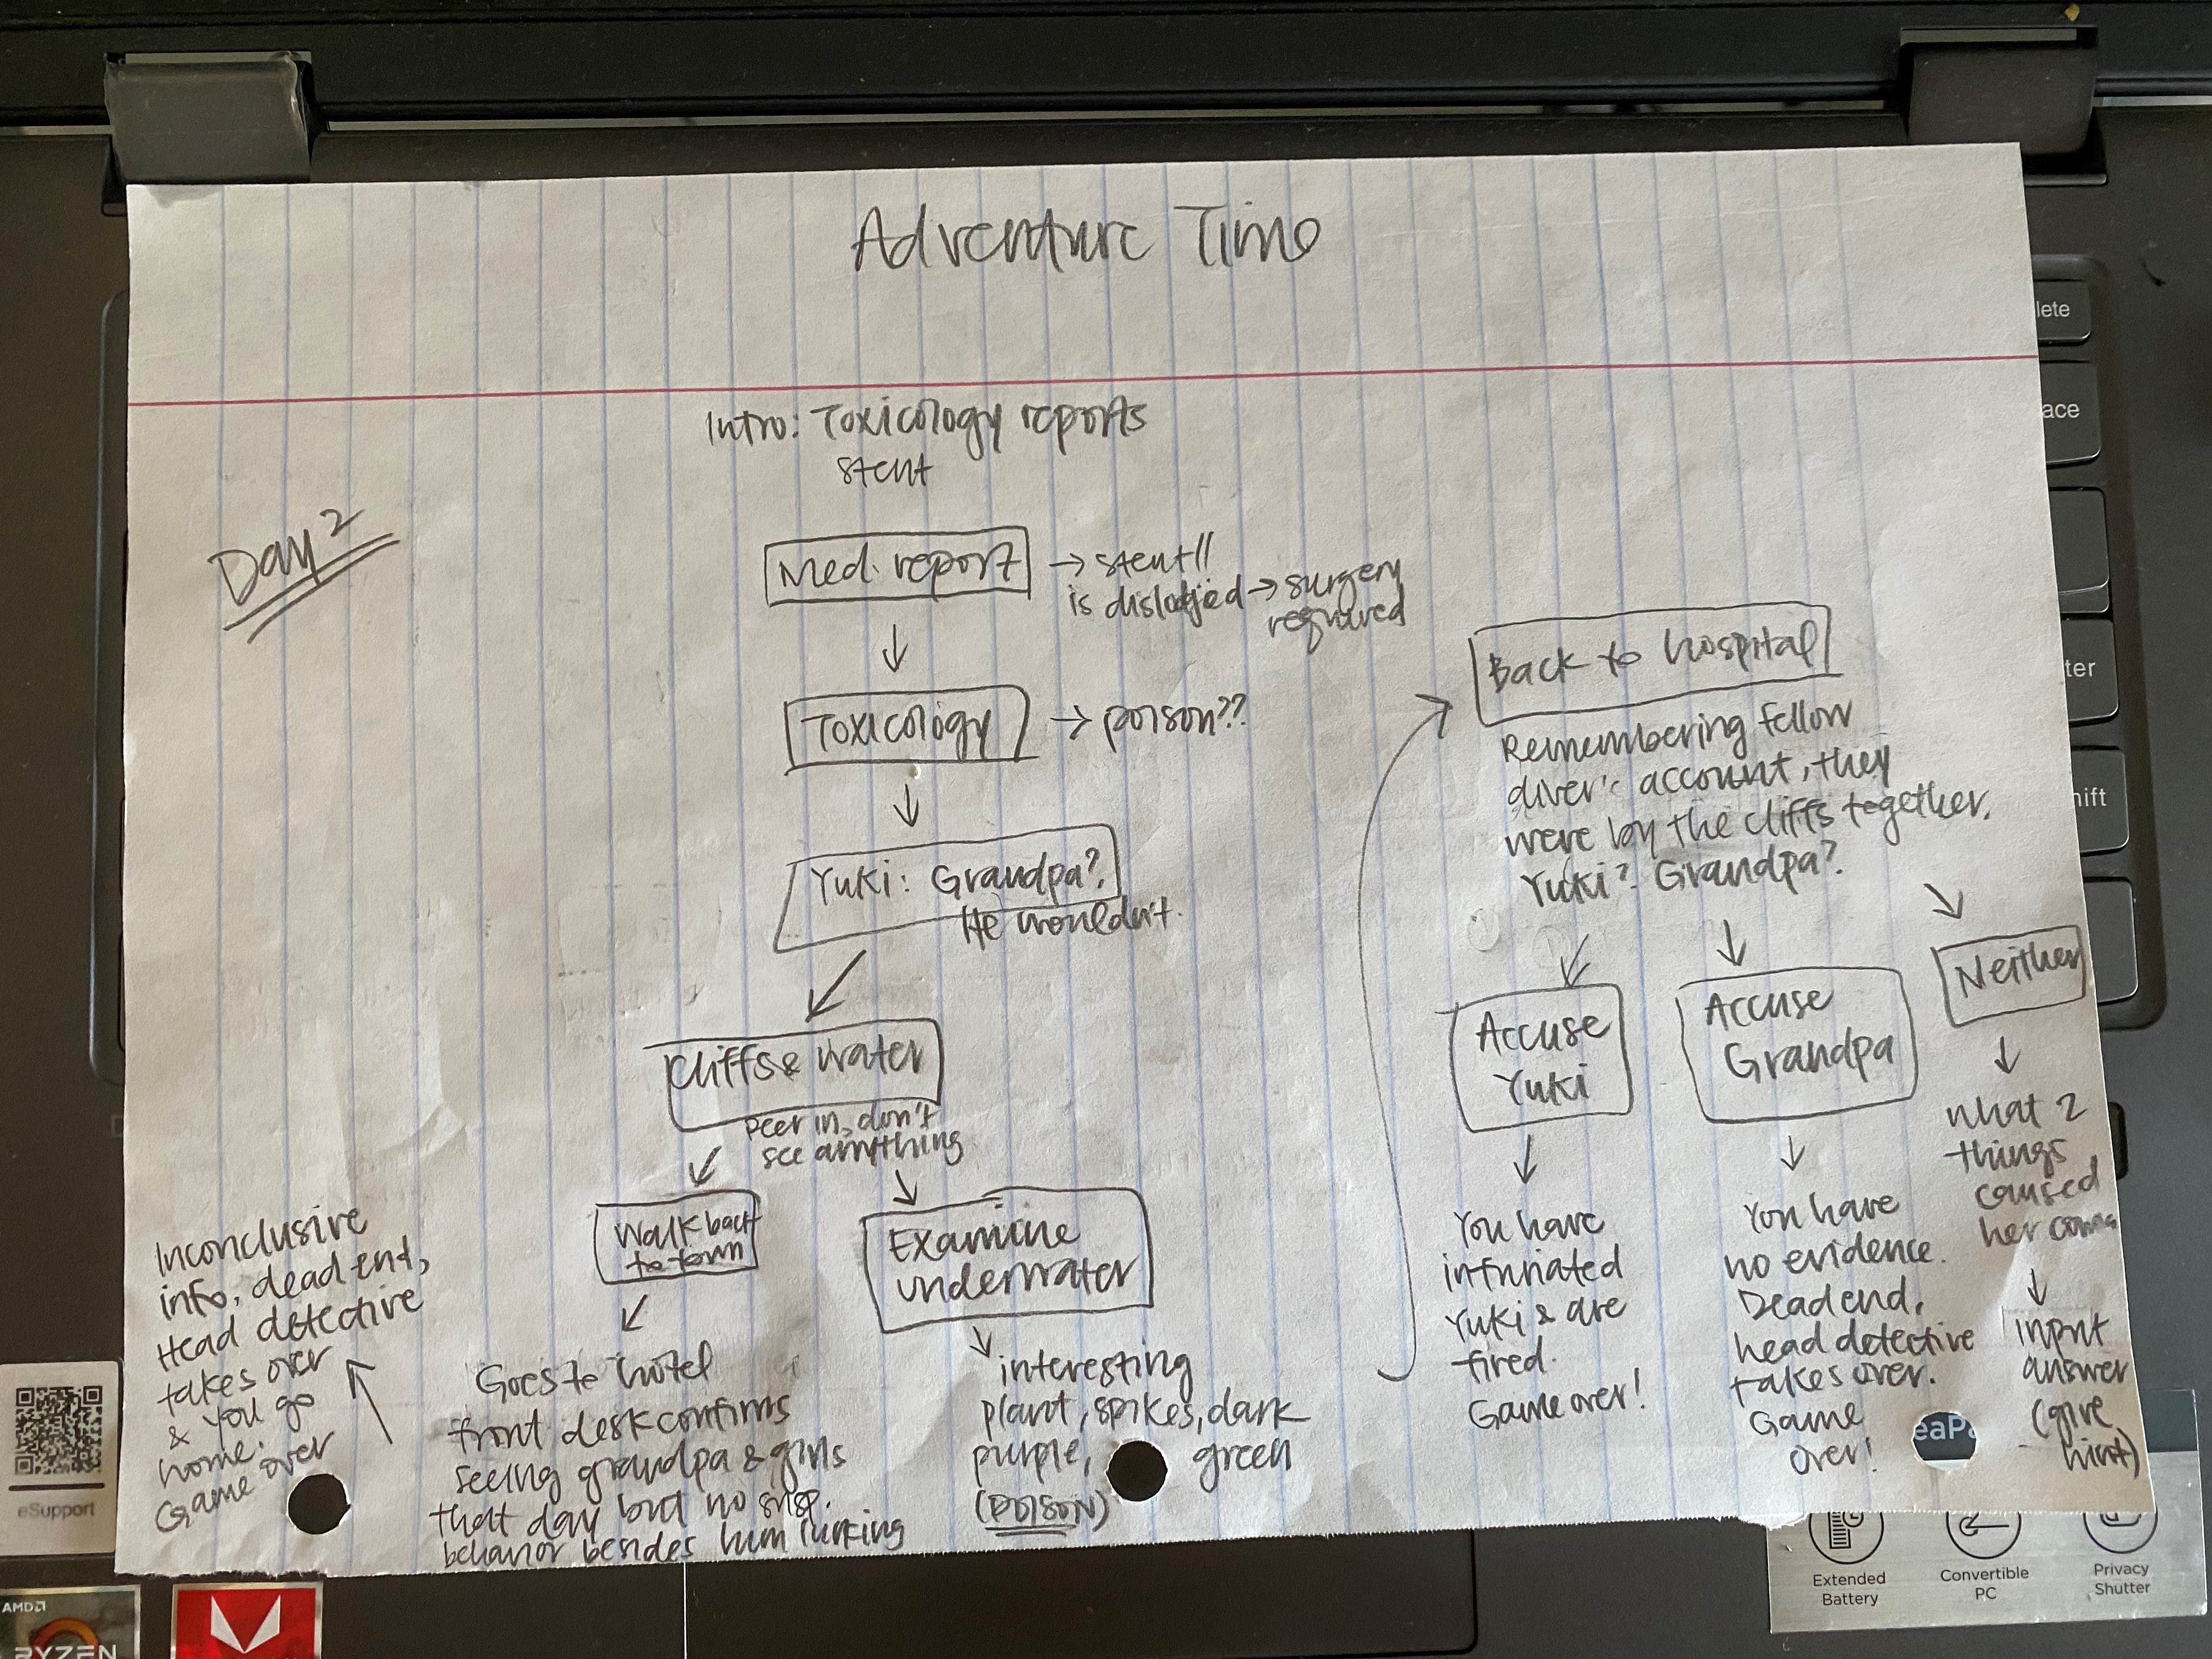 Adventure Time
Intro: Toxicology reports
stent
Day 2
Med. report
→ stent!!
is dislodjed → surgery
required
Toxicology
→ poison??
Yuki: Grandpa?
He wouldn't.
Cliffs & water
peer in, don't
see anything
Walk back
to town
Goes to hotel
front desk confirms
seeing grandpa & girls
that day but no susp.
behavior besides him lurking
Inconclusive
info, dead end,
Head detective
takes over
& you go
home.
Game over
Examine
underwater
interesting
plant, spikes, dark
purple, green
(POISON)
Back to hospital
Remembering fellow
diver's account, they
were by the cliffs together.
Yuki? Grandpa?
Accuse
Yuki
You have
infuriated
Yuki & are
fired.
Game over!
Accuse
Grandpa
You have
no evidence.
Dead end,
head detective
takes over.
Game
over!
Neither
what 2
things
caused
her coma
input
answer
(give
hint)
lete
ace
ter
hift
eSupport
AMD
RYZEN
eaPa
Extended
Battery
Convertible
PC
Privacy
Shutter